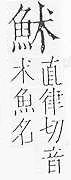 直律切音
术魚名